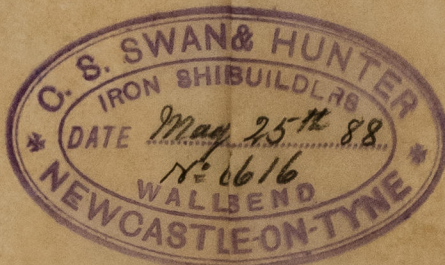 C. S. SWAN & HUNTER
IRON SHIBUILDERS
DATE May 25th 88
No 1616
WALLSEND
NEWCASTLE-ON-TYNE